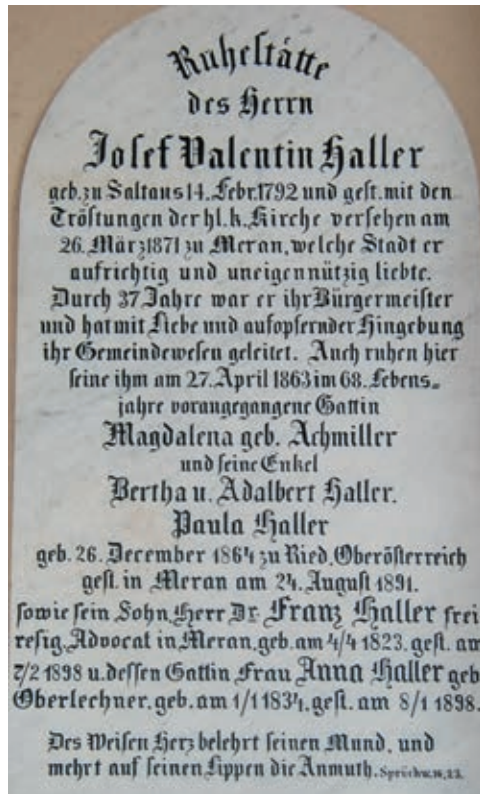 Ruheſtätte
des Herrn
Joſef Valentin Haller
geb. zu Saltaus 14. Febr. 1792 und geſt. mit den
Tröſtungen der hl. k. Kirche verſehen am
26. März 1871 zu Meran, welche Stadt er
aufrichtig und uneigennützig liebte.
Durch 37 Jahre war er ihr Bürgermeiſter
und hat mit Liebe und aufopfernder Hingebung
ihr Gemeindeweſen geleitet. Auch ruhen hier
ſeine ihm am 27. April 1863 im 68. Lebens-
jahre vorangegangene Gattin
Magdalena geb. Achmiller
und ſeine Enkel
Bertha u. Adalbert Haller.
Paula Haller
geb. 26. December 1864 zu Ried, Oberöſterreich
geſt. in Meran am 24. Auguſt 1891.
ſowie ſein Sohn, Herr Dr. Franz Haller frei
reſig. Advocat in Meran, geb. am 4/4 1823, geſt. am
7/2 1898 u. deſſen Gattin Frau Anna Haller geb
Oberlechner, geb. am 1/1 1834, geſt. am 8/1 1898.
Des Weiſen Herz belehrt ſeinen Mund, und
mehrt auf ſeinen Lippen die Anmuth. Sprüchw. 16, 23.